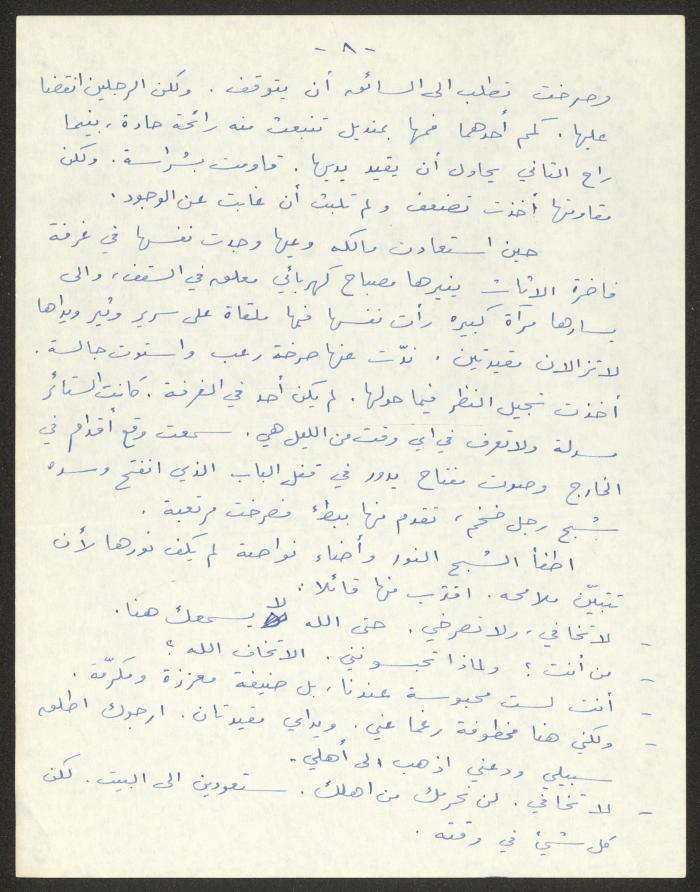 - ٨ -
وصرخت تطلب الى السائق أن يتوقف . ولكن الرجلين انقضا
عليها . كمم أحدهما فمها بمنديل تنبعث منه رائحة حادة ، بينما
راح الثاني يحاول أن يقيد يديها . قاومت بشراسة . ولكن
مقاومتها أخذت تضعف ولم تلبث أن غابت عن الوجود .
حين استعادت مالكه وعيها وجدت نفسها في غرفة
فاخرة الاثاث ينيرها مصباح كهربائي معلق في السقف ، والى
يسارها مرآة كبيره رأت نفسها فيها ملقاة على سرير وثير ويداها
لا تزالان مقيدتين . ندّت عنها صرخة رعب واستوت جالسة .
أخذت تجيل النظر فيما حولها . لم يكن أحد في الغرفة . كانت الستائر
مسدلة ولا تعرف في اي وقت من الليل هي . سمعت وقع أقدام في
الخارج وصوت مفتاح يدور في قفل الباب الذي انفتح وسده
شبح رجل ضخم ، تقدم منها ببطئ فصرخت مرتعبة .
اطفأ الشبح النور وأضاء نواصة لم يكف نورها لأن
تتبيّن ملامحه . اقترب منها قائلا :
- لا تخافي ، ولا تصرخي . حتى الله لا يسمعك هنا .
- من أنت ؟ ولماذا تحبسونني . الا تخاف الله ؟
- أنت لست محبوسة عندنا ، بل ضيفة معززة ومكرّمة .
- ولكني هنا مخطوفة رغما عني . ويداي مقيدتان . ارجوك اطلق
سبيلي ودعني اذهب الى أهلي .
- لا تخافي . لن نحرمك من اهلك . ستعودين الى البيت . لكن
كل شيئ في وقته .